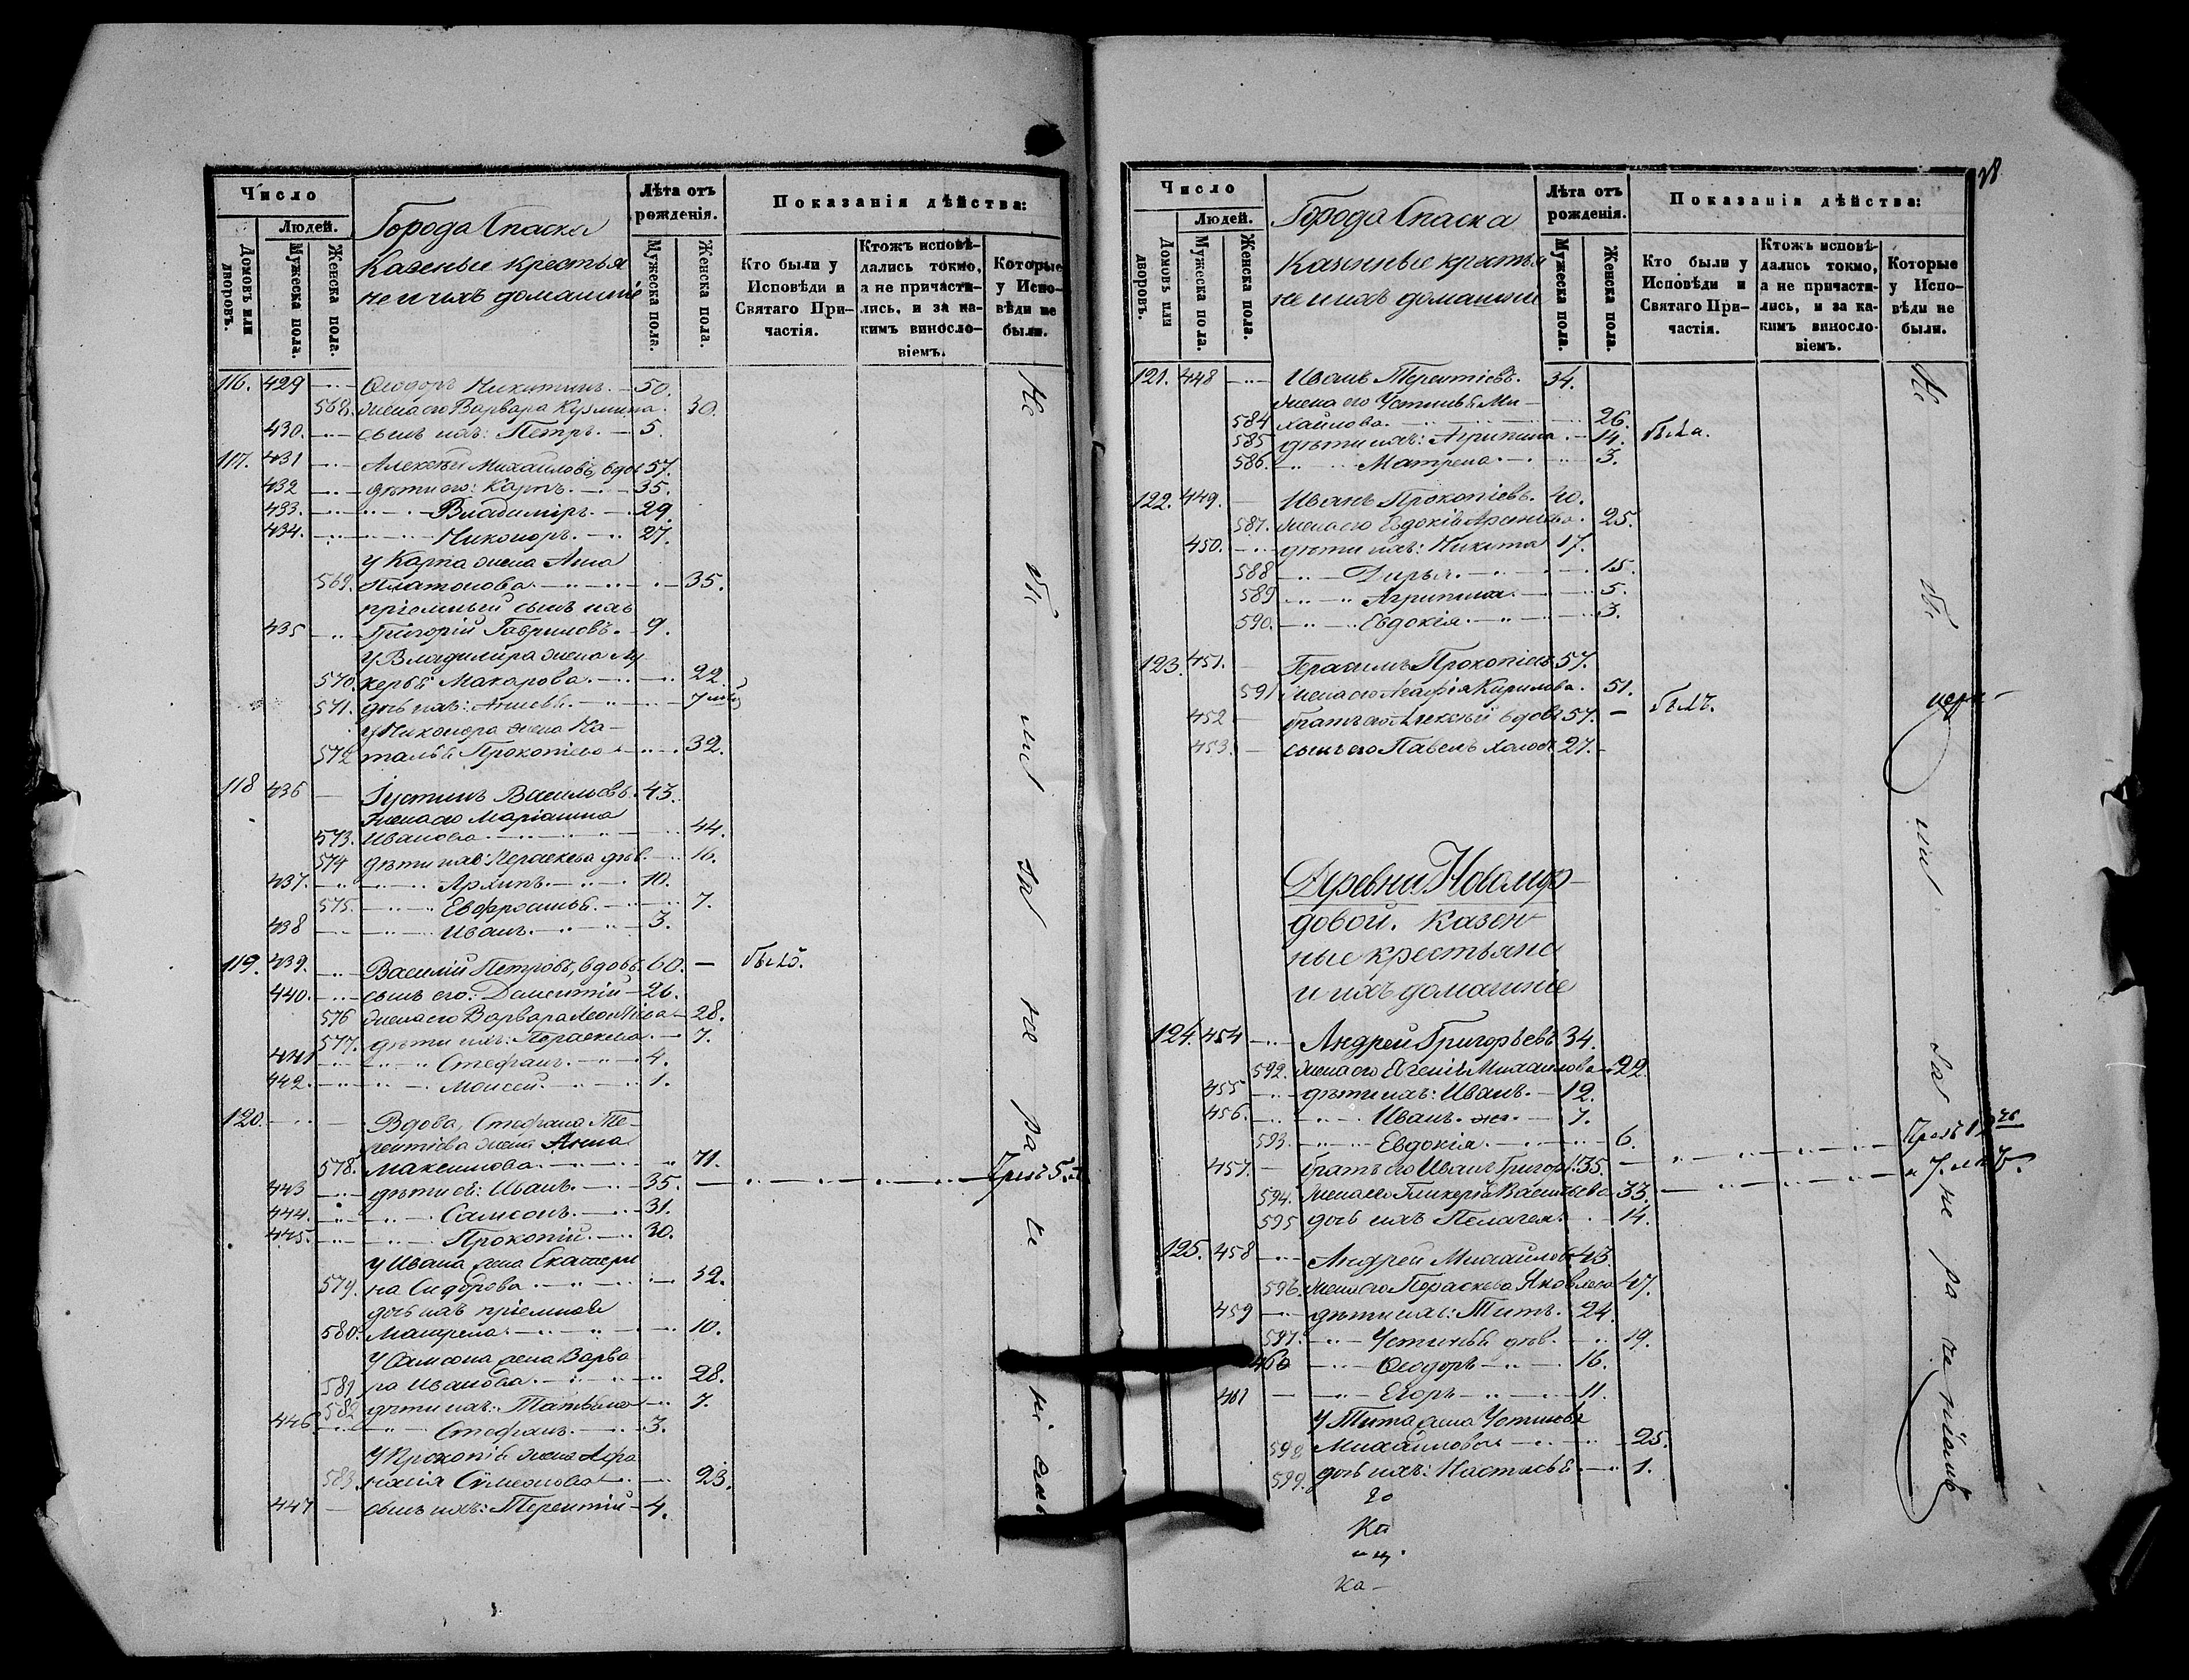 Число
Людей.
Домовъ или дворовъ.
Мужеска пола.
Женска пола.
Города Спаска
казеные крестья
не и ихъ домашніе
Лѣта отъ рожденія.
Мужеска пола.
Женска пола.
Показанія дѣйства:
Кто были у Исповѣди и Святаго Причастія.
Ктожъ исповѣдались токмо, а не причастились, и за какимъ винословіемъ.
Которые у Исповѣди не были.
116. 429 Ѳеодоръ Никитинъ. 50.
568. жена его Варвара Кузмина. 30.
430. сынъ ихъ: Петръ. 5.
117. 431 Алексѣй Михайловъ, вдов 57.
432 дѣти его: Карпъ. 35.
433. Владимiръ. 29.
434. Никоноръ. 27.
у Карпа жена Анна
569. Платонова. 35.
пріемный сынъ ихъ
435 Григорій Гавриловъ. 9.
У Владиміра жена Лу
570. керья Макарова. 22.
571. дочь ихъ: 7
У Никонора жена На-
572 талья Прокопіева 32.
118 436 Іустинъ Васильевъ. 43.
жена его Маріанна
573. Иванова 44.
574 дѣти ихъ: Параскева дѣв. 16.
437. Архипъ. 10.
575. Евфросинья. 7.
438 Иванъ. 3.
119. 439. Василій Петровъ, вдовъ 60. — былъ.
440. сынъ его: Дометій 26.
576 жена его Варвара Леонтіева 28.
577. дѣти ихъ: Параскева. 7.
441 Стефанъ. 4.
442. Моисей. 1.
120. Вдова, Стефана Те-
рентіева жена Анна
578. Максимова. 71.
443 дѣти ея: Иванъ. 35.
444. Самсонъ. 31.
445. Прокопій. 30.
У Ивана жена Екатери
579. на Сидорова 32.
дочь ихъ пріемная
580. Матрена. 10.
У Самсона жена Варва
581 ра Иванова. 28.
582 дѣти ихъ: Татьяна 7.
446 Стефанъ. 3.
У Прокопія жена Афа
583. насія Симеонова 23.
447 сынъ ихъ: Терентій 4.
Не бы ли за не ра че ні емъ
28
Число
Людей.
Домовъ или дворовъ.
Мужеска пола.
Женска пола.
Города Спаска
казенные крестья
не и ихъ домашніе
Лѣта отъ рожденія.
Мужеска пола.
Женска пола.
Показанія дѣйства:
Кто были у Исповѣди и Святаго Причастія.
Ктожъ исповѣдались токмо, а не причастились, и за какимъ винословіемъ.
Которые у Исповѣди не были.
121. 448 Иванъ Терентіевъ. 34.
жена его Устинья Ми-
584 хайлова. 26.
585 дѣти ихъ: Агрипина 14. была.
586. Матрена. 3.
122. 449. Иванъ Прокопіевъ. 40.
587. жена его Евдокія Арсеньева. 25.
450. дѣти ихъ: Никита 17.
588 Дарья. 15.
589 Агрипина. 5.
590. Евдокія. 3.
123. 451. Герасимъ Прокопіевъ 57.
591 жена его Агафія Кирилова. 51.
452 братъ его Алексѣй вдовъ 57. — былъ.
453. сынъ его Павелъ холост 27.
Деревни Новомур-
довой. Казен-
ные крестьяне
и ихъ домашніе
124. 454 Андрей Григорьевъ 34.
592. жена его Евгенія Михайлова 22.
455 дѣти ихъ: Иванъ. 12.
456. Иванъ же. 7.
593. Евдокія. 6.
457. братъ его Иванъ Григор. 35.
594. жена его Гликерія Васильева 33.
595 дочь ихъ Пелагея. 14.
125. 458 Андрей Михайловъ 43.
596. жена его Параскева Яковлева 47.
459 дѣти ихъ: Титъ. 24.
597. Устинья дѣв. 19.
460 Ѳеодоръ 16.
461 Егоръ 11.
У Тита жена Устинья
598 Михайлова 25.
599. дочь ихъ: Настасья 1.
Не бы ли за не ра че ніемъ